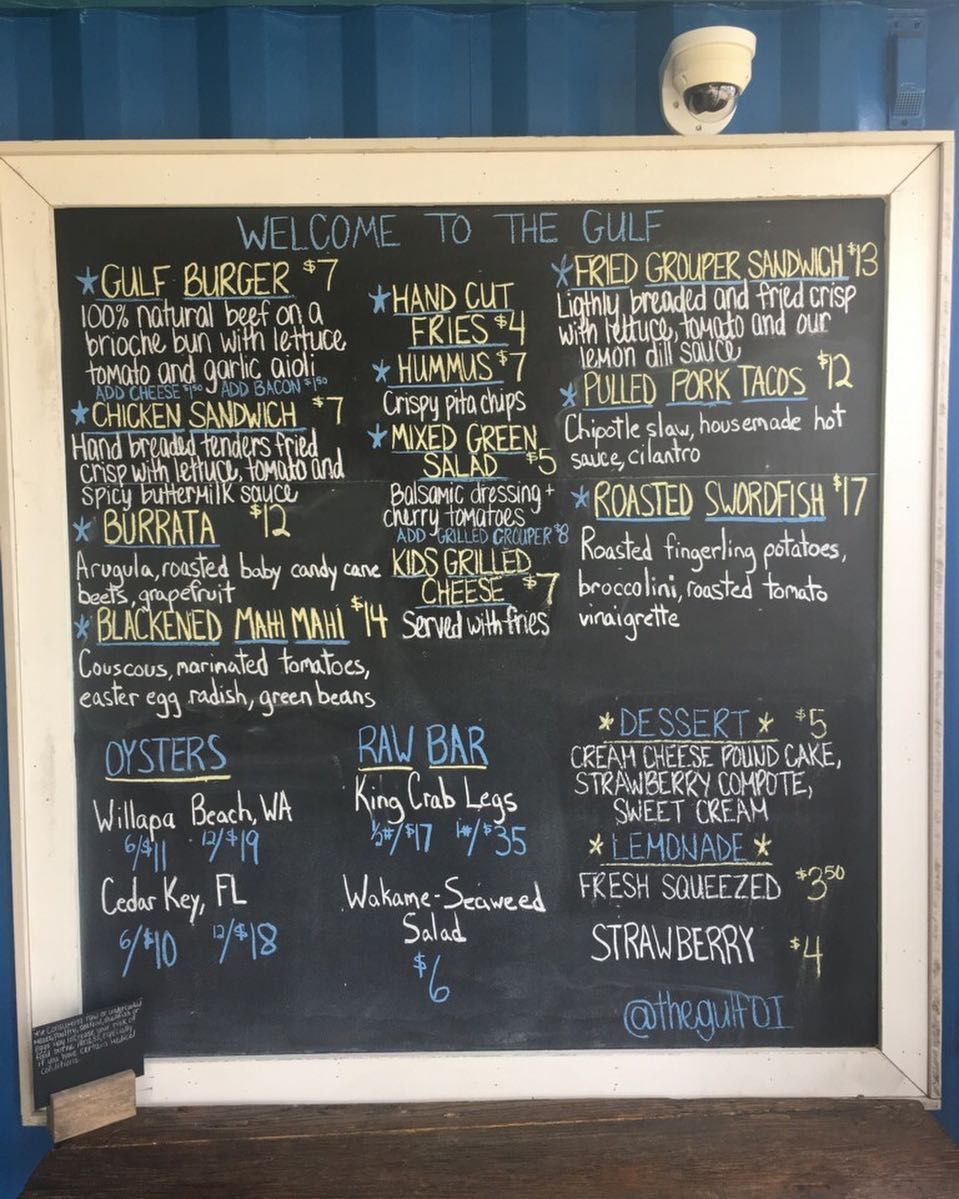 WELCOME TO THE GULF
GULF BURGER $7
100% natural beef on a
brioche bun with lettuce
tomato and garlic aioli
ADD CHEESE $1.50 ADD BACON $1.50
CHICKEN SANDWICH $7
Hand breaded tenders fried
crisp with lettuce, tomato and
spicy buttermilk sauce
BURRATA $12
Arugula, roasted baby candy cane
beets, grapefruit
BLACKENED MAHI MAHI $14
Couscous, marinated tomatoes,
easter egg radish, green beans
HAND CUT
FRIES $4
HUMMUS $7
Crispy pita chips
MIXED GREEN
SALAD $5
Balsamic dressing +
cherry tomatoes
ADD GRILLED GROUPER $8
KIDS GRILLED
CHEESE $7
Served with fries
FRIED GROUPER SANDWICH $13
Ligthly breaded and fried crisp
with lettuce, tomato and our
lemon dill sauce
PULLED PORK TACOS $12
Chipotle slaw, housemade hot
sauce, cilantro
ROASTED SWORDFISH $17
Roasted fingerling potatoes,
broccolini, roasted tomato
vinaigrette
OYSTERS
Willapa Beach, WA
6/$11 12/$19
Cedar Key, FL
6/$10 12/$18
RAW BAR
King Crab Legs
½#/$17 1#/$35
Wakame-Seaweed
Salad
$6
DESSERT $5
CREAM CHEESE POUND CAKE,
STRAWBERRY COMPOTE,
SWEET CREAM
LEMONADE
FRESH SQUEEZED $3.50
STRAWBERRY $4
@thegulfOI
** Consuming raw or undercooked
meats, poultry, seafood, shellfish or
eggs may increase your risk of
food borne illness, especially
if you have certain medical
conditions